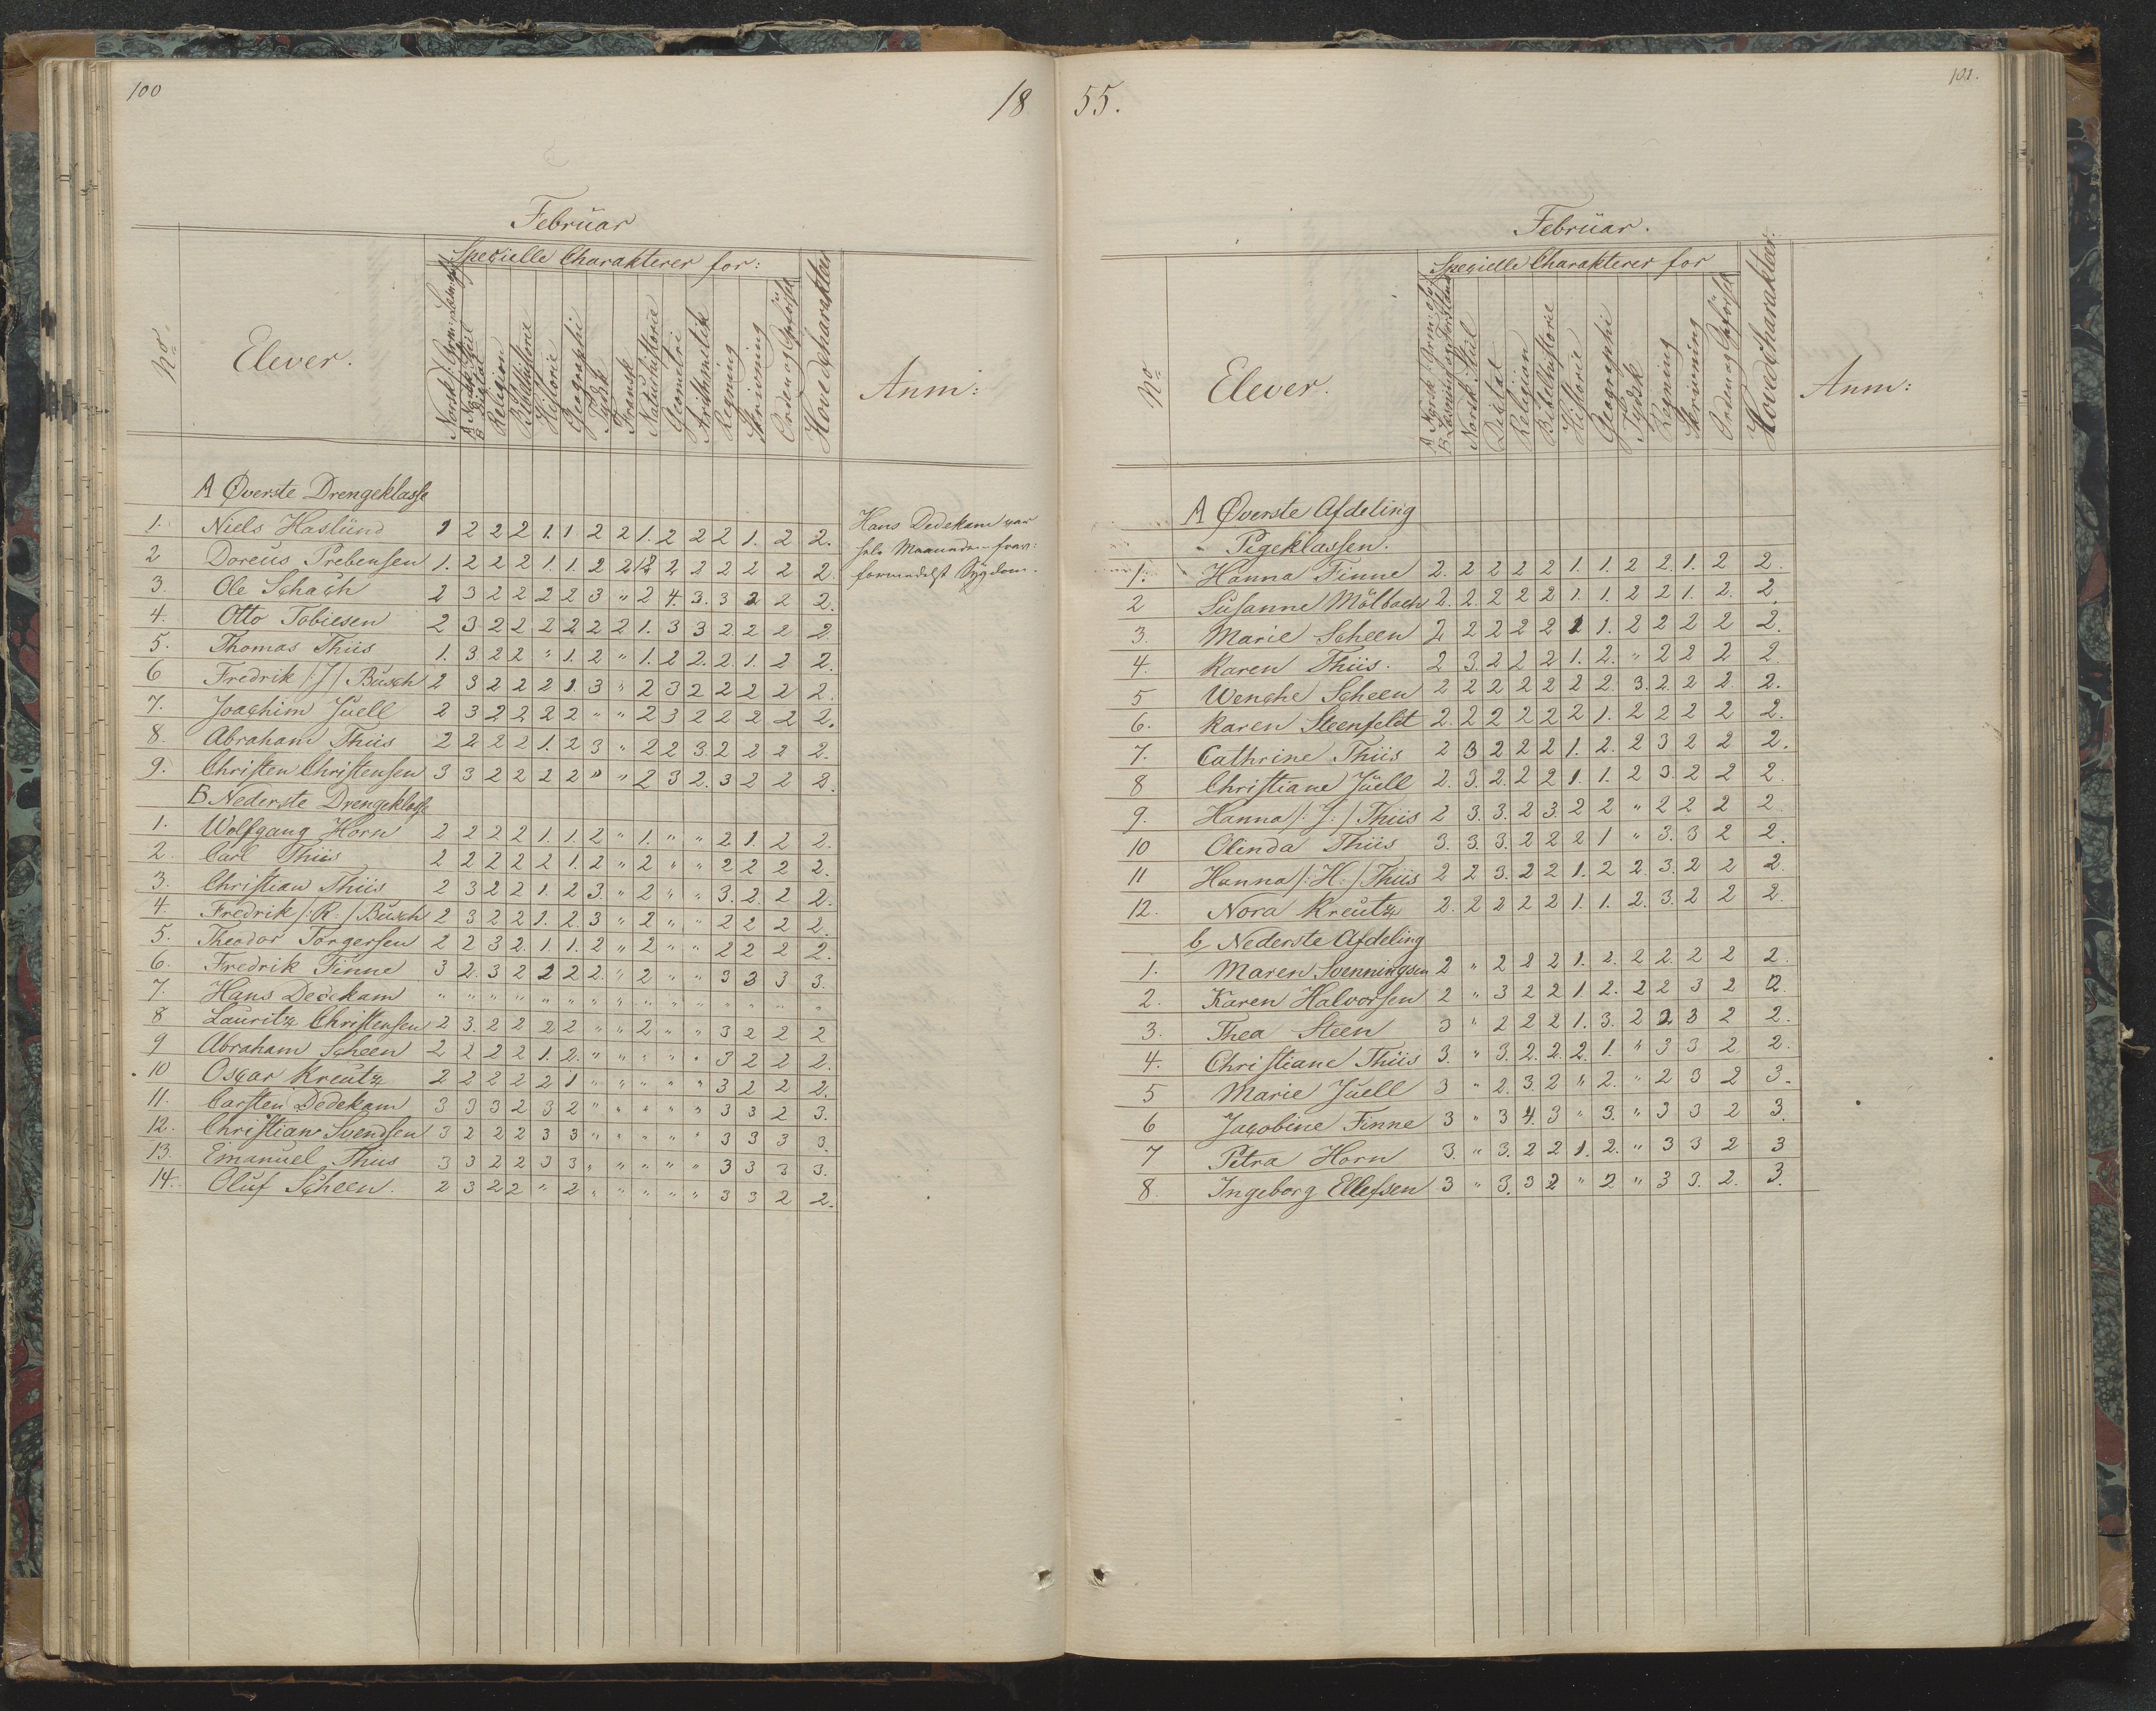 100
18
Februar
Specielle Charakterer for:
No
Elever.
Religion
Bibelhistorie
Historie
Geographi
Tydsk
Fransk
Naturhistorie
Geometri
Arithmetik
Regning
Skrivning
Orden og Opførsel
Hovedcharakter
Anm:
A Øverste Drengeklasse
1. Niels Haslund 1 2 2 2 1. 1 2 2 1. 2 2 2 1. 2 2.
2 Doreus Prebensen 1. 2 2 2 1. 1. 2 2 2 2 2 2 2 2.
3. Ole Schach 2 3 2 2 2 2 3 " 2 4. 3. 3 2 2 2.
4. Otto Tobiesen 2 3 2 2 2 2 2 2 1. 3 3 2. 2 2 2.
5. Thomas Thiis 1. 3. 2 2 " 1. 2 " 1. 2 2. 2. 1. 2 2.
6 Fredrik /:J/ Busch 2 3 2 2 2 1. 3 " 2 3 2 2 2 2 2.
7. Joachim Juell 2 3 2 2 2 2 " " 2 3 2 2 2 2 2.
8. Abraham Thiis 2 2 2 2 1. 2 3 " 2 2 3 2 2 2 2.
9. Christen Christensen 3 3 2 2 2 2 " " 2 3 2. 3 2 2 2.
B. Nederste Drengeklasse
1. Wolfgang Horn 2 2 2 2 1. 1. 2 " 1. " " 2 1. 2 2.
2. Carl Thiis 2 2 2 2 2 1. 2 " 2 " " 2 2 2 2.
3. Christian Thiis 2 3 2 2 1. 2 3. " 2 " " 3. 2. 2 2.
4. Fredrik /:R:/ Busch 2 3 2 2 1. 2. 3 " 2 " " 2 2 2 2.
5. Theodor Torgersen 2 2 3 2. 1. 1. 2 " 2 " " 2 2 2 2.
6. Fredrik Finne 3 2. 3 2 2 2 2. " 2 " " 3 3 3 3.
7. Hans Dedekam " " " " " " " " " " " " " " "
8 Lauritz Christensen 2 3. 2 2 2 2 " " 2 " " 3 2 2 2
9 Abraham Scheen 2 2 2 2 1. 2. " " " " " 3 2 2 2.
10 Oscar Kreutz 2 2 2 2 2 1 " " " " " 3 2 2 2.
11. Carsten Dedekam 3 3 3 2 3 2 " " " " " 3 3 2 3.
12. Christian Svendsen 3 2 2 2 3 3 " " " " " 3 3 3 3.
13. Emanuel Thiis 3 3 2 2 3 3 " " " " " 3 3 3 3.
14. Oluf Scheen. 2 3 2 2 " 2 " " " " " 3 3 2 2.
Hans Dedekam var
hele Maaneden frav:
formedelst Sygdom.
55.
101.
Februar.
Specielle Charakterer for
No
Elever.
Norsk Stiil
Diktat
Religion
Bibelhistorie
Historie
Geographi
Tydsk
Regning
Skrivning
Orden og Opførsel
Hovedcharakter
Anm:
A Øverste Afdeling
Pigeklassen.
1. Hanna Finne 2. 2 2 2 2 1. 1. 2 2. 1. 2 2.
2 Susanne Mölbach 2. 2. 2 2 2 1. 1. 2 2 1. 2. 2.
3. Marie Scheen 2 2 2 2 2 1 1. 2 2 2 2 2.
4. Karen Thiis. 2 3. 2 2 2 1. 2. " 2 2 2 2.
5 Wenche Scheen 2 2 2 2 2 2 2. 3. 2. 2 2. 2.
6. Karen Steenfeldt 2. 2 2 2 2 2 1. 2 2 2 2 2.
7. Cathrine Thiis 2 3 2 2 2 1. 2. 2 3 2 2 2.
8 Christiane Juell 2. 3. 2. 2 2 1. 1. 2 3. 2 2 2.
9. Hanna /:J:/ Thiis 2 3. 3. 2 3. 2 2 " 2 2 2 2.
10 Olinda Thiis 3. 3. 3. 2 2 2 1 " 3. 3 2 2.
11 Hanna /:H:/ Thiis 2 2 3. 2 2 1. 2 2. 3. 2 2 2.
12. Nora Kreutz 2. 2 2 2 2 1. 1. 2. 3. 2 2 2.
b Nederste Afdeling
1. Maren Svenningsen 2 " 2 2 2 1. 2. 2 2. 2 2 2.
2. Karen Halvorsen 2 " 3 2 2 1. 2. 2 2 3 2 2.
3. Thea Steen 3 " 2 2 2 1. 3. 2 2 3 2 2.
4. Christiane Thiis 3. " 3. 2. 2. 2. 1. " 3 3 2. 2.
5 Marie Juell 3 " 2. 3. 2 " 2. " 2 3 2 3.
6 Jacobine Finne 3 " 3 4. 3 " 3. " 3 3 2 3.
7 Petra Horn 3. " 3. 2 2 1. 2. " 3 3 2 3
8. Ingeborg Ellefsen 3 " 3. 3 2 " 2 " 3 3. 2. 3.